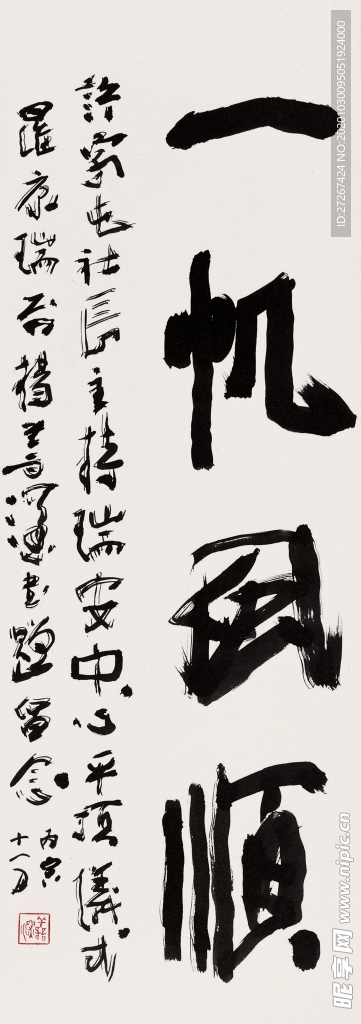 一帆風順
許家屯社長主持瑞安中心平頂儀式
羅康瑞首楊善深畫題留念
丙寅十一月
ID:27267424 NO:20201030095051924000
昵享网 www.nipic.cn